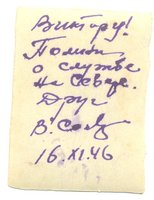 Виктору!
Помни
о службе
на Севере.
Друг
В.
16.XI.46